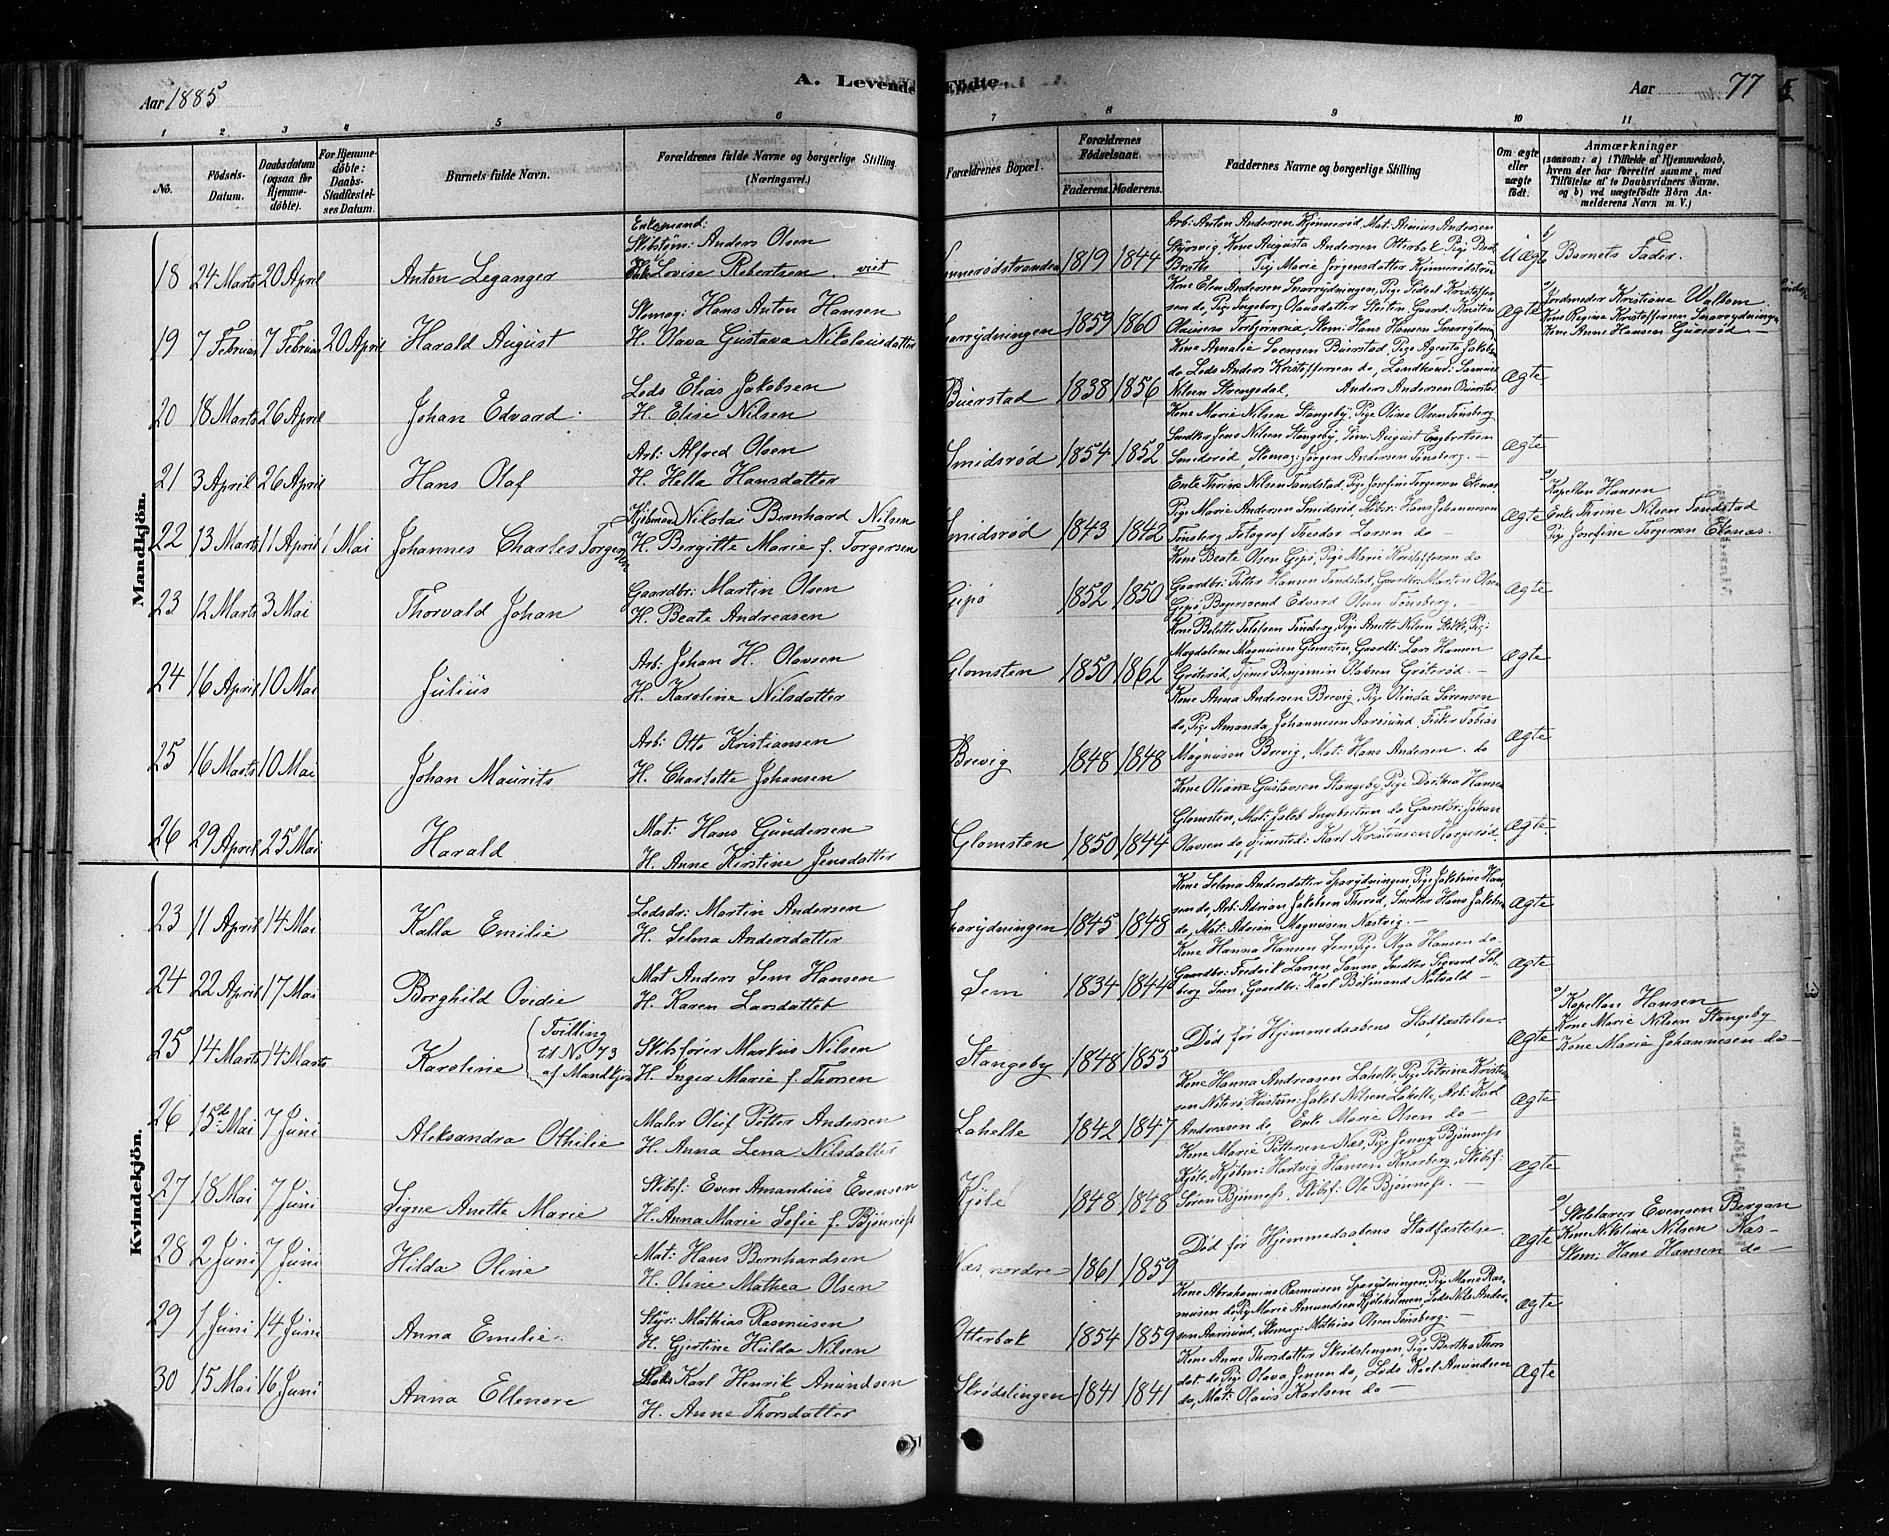 Aar 1885
A. Levende Födte.
Aar 77
1 2 3 4 5 6 7 8 9 10 11
No.
Födsels-Datum.
Daabsdatum (ogsaa for Hjemme-döbte).
For Hjemme-döbte: Daabs-Stadfæstel-ses Datum.
Barnets fulde Navn.
Forældrenes fulde Navne og borgerlige Stilling (Næringsvei.)
Forældrenes Bopæl.
Forældrenes Födselsaar.
Faderens. Moderens.
Faddernes Navne og borgerlige Stilling
Om ægte eller uægte födt.
Anmærkninger
(saasom: a) i Tilfælde af Hjemmedaab, hvem der har forrettet samme, med Tilföielse af to Daabsvidners Navne, og b) ved uægtefödte Börn An-melderens Navn m. V.)
Mandkjön.
18 24 Marts 20 April Anton Leganger
Enkemand: Skibstøm: Anders Olsen
Lovise Robertsen. viet
1819 1844
Arb: Anton Andersen Kjønnerød, Mat: Andersen
Kone Augusta Andersen Otterbæk, Pige
Pige Marie Jørgensdatter
Uægte
b) Barnets Fader.
19 7 Februar 7 Februar 20 April Harald August
Skomag: Hans Anton Hansen
H. Olava Gustava Nikolausdatter
1859 1860
Kone Elen Andersen Snarrydningen, Pige
Skom: Hans Hansen
Ægte
a) Jordmoder Kristiane Waltom
Kone Regine Kristoffersen Snarrydningen
Kone Anne Hansen
20 18 Marts 26 April Johan Edvard
Lods Elias Jakobsen
H. Elise Nilsen
Buerstad 1838 1856
Kone Amalie Buerstad, Pige Jakobsen
do, Lods Anders Kristoffersen do,
Nilsen Stengedal, Anders Andersen Buerstad
Ægte
21 3 April 26 April Hans Olaf
Arb: Alfred Olsen
H. Hella Hansdatter
Smidsrød 1854 1852
Kone Marie Nilsen Stangeby, Pige Oline Olsen Tønsberg
Snedker Jens Nilsen Stangeby, Søm: August Engbretsen
Smidsrød, Skomag: Jørgen Andersen Tønsberg. —
Ægte
22 13 Marts 11 April 1 Mai Johannes Charles Torgersen
Kjøbmand Nikolai Bernhard Nilsen
H. Bergitte Marie f. Torgersen
Smidsrød 1843 1842
Enke Thrine Nilsen Tandstad, Pige Josefine Torgersen Ekenæs,
Pige Marie Andersen Smidsrød, Skibsr: Hans Johannesen
Tønsberg, Fotograf Theodor Larsen do —
Ægte
a) Kapellan Hansen
Enke Thrine Nilsen Tandstad
Pig. Josefine Torgersen Ekenæs.
23 12 Marts 3 Mai Thorvald Johan
Gaardbr: Martin Olsen
H. Beate Andreasen
Gipø 1852 1850
Kone Beate Olsen Gipø, Pige Marie Kristoffersen do
Gaardbr: Petter Hansen Tandstad, Gaardbr: Martin Olsen
Gipø, Bagersvend Edvard Olsen Tønsberg. —
Ægte
24 16 April 10 Mai Julius
Arb: Johan H. Olavsen
H. Karoline Nilsdatter
Glomsten 1850 1862
Kone Bolette Tollefsen Tønsberg, Pige Anette Nilsen Pige
Magdalene Magnusen Glomsten, Gaardb: Lars Hansen
Grøterød, Tjener Benjamin Olavsen Grøterød. —
Ægte
25 16 Marts 10 Mai Johan Maurits
Arb: Otto Kristiansen
H. Charlotte Johansen
Brevig 1848 1848
Kone Anna Andersen Brevig, Pige Olinda Sørensen
do, Pige Amanda Johannesen Aarøsund, Fisker Tobias
Magnusen Brevig, Mat: Hans Andersen. do
Ægte
26 29 April 25 Mai Harald
Mat: Hans Gundersen
H. Anne Kirstine Jensdatter
Glomsten 1850 1844
Kone Oliane Gustavsen Stangeby, Pige Dorthea Hansen
Glomsten, Mat: Jakob Ingebretsen do, Gaardbr: Johan
Olavsen do, Karl Kristensen
Ægte
Kvindekjön.
23 11 April 14 Mai Kalla Emilie
Lodsdr: Martin Andersen
H. Selma Andersdatter
1845 1848
Kone Selma Andersdatter Sparrydningen, Pige Jakobine Han-
sen do, Arb: Adrian Jakobsen Thorød, Snedker Hans Jakobsen
do, Mat: Adrian Magnusen Nastvig. —
Ægte
24 22 April 17 Mai Borghild Ovidie
Mat Anders Sem Hansen
H. Karen Larsdatter
Sem 1834 1844
Kone Hanna Hansen Sem, Pige Olga Hansen do.
Gaardbr: Fredrik Larsen Sanne, Snedker Sigvard Sol-
berg Sem, Gaardbr: Karl
Ægte
25 14 Marts 14 Marts Karoline (Tvilling til No 73 af Mandkjøn
Skibsfører Markus Nilsen
H. Inger Marie f. Thorsen
Stangeby 1848 1855
Død før Hjemmedaabens Stadfæstelse.
Ægte
a) Kapellan Hansen
Kone Marie Nilsen Stangeby
Kone Marie Johannesen do —
26 15de Mai 7 Juni Aleksandra Othilie
Maler Oluf Petter Andersen
H. Anna Lena Nilsdatter
Lahelle 1842 1847
Kone Hanna Andreasen Lahelle, Pige Petrine Kristen-
sen Nøterø, Husm: Jakob Nilsen Lahelle, Arb: Karl
Andreasen do, Enke Marie Olsen do —
Ægte
27 18 Mai 7 Juni Signe Anette Marie
Skibsf: Even Amandius Evensen
H. Anna Marie Sofie f. Bjønness
Kjøle 1848 1848
Kone Marie Pettersen Næs, Pige Jenny Bjønness
Kjøle, Kjøbm: Hartvig Hansen Knarberg, Skibsf:
Søren Bjønness, Skibsf: Ole Bjønness. —
Ægte
28 2 Juni 7 Juni Hilda Oline
Mat: Hans Bernhardsen
H. Oline Mathea Olsen
Næs, nordre 1861 1859
Død før Hjemmedaabens Stadfæstelse
Ægte
a) Skolelærer Evensen Bergan
Kone Nikoline Nilsen Næs —
Skom: Hans Hansen do —
29 1 Juni 14 Juni Anna Emilie
Styr: Mathias Rasmusen
H. Gjertine Hulda Nilsen
Otterbæk 1854 1859
Kone Abrahamine Rasmusen Sparrydningen, Pige Marie Ras-
musen do, Pig Marie Amundsen Kjøleholmen, Lods Nils Ander-
sen Aarøsund, Skomag: Mathias Olsen Tønsberg. —
Ægte
30 15 Mai 16 Juni Anna Ellenore
Karl Henrik Amundsen
H. Anne Thorsdatter
Skrødslingen 1841 1841
Kone Anne Thorsdatter Skrødslingen, Pige Bertha Thors-
dat. do, Pige Olava Jensen do, Lods Karl Amundsen
do, Mat: Olaus Karlsen do —
Ægte